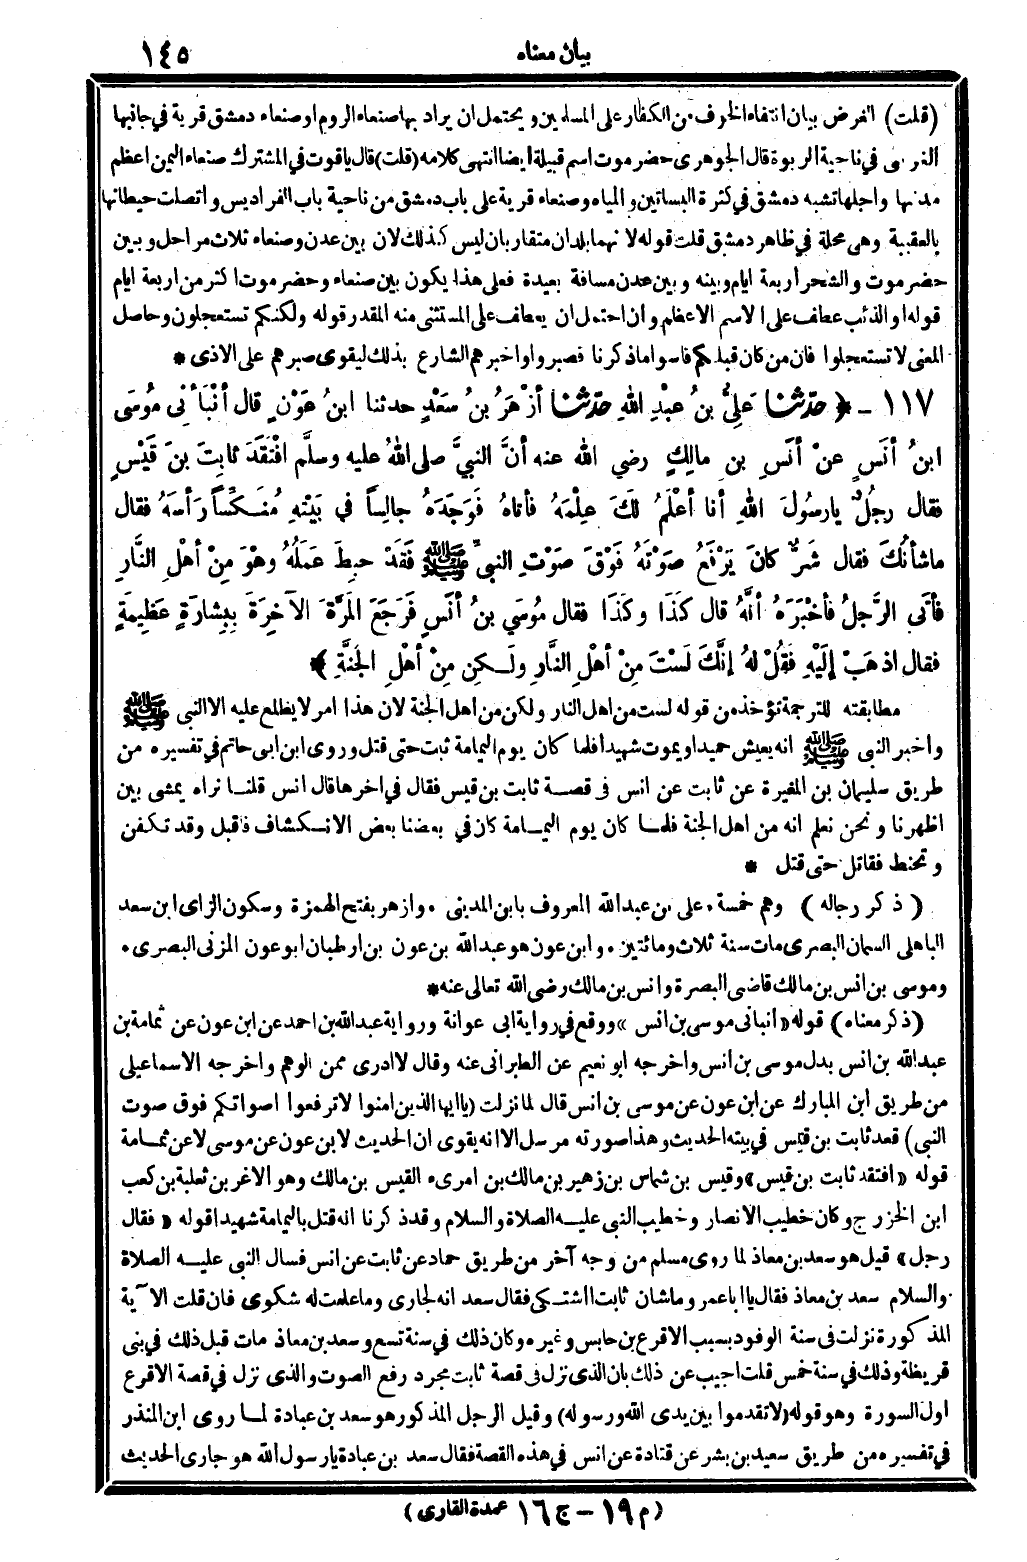 بيان معناه ١٤٥
(قلت) الغرض بيان انتفاء الخوف من الكفار على المسلمين ويحتمل ان يراد بها صنعاء الروم او صنعاء دمشق قرية في جانبها
الغربى في ناحية الربوة قال الجوهرى حضرموت اسم قبيلة ايضا انتهى كلامه (قلت) قال ياقوت في المشترك صنعاء اليمن اعظم
مدنها واجلها تشبه دمشق في كثرة البساتين والمياه وصنعاء قرية على باب دمشق من ناحية باب الفراديس واتصلت حيطانها
بالعقيبة وهى محلة في ظاهر دمشق قلت قوله لانهما بلدان متقاربان ليس كذلك لان بين عدن وصنعاء ثلاث مراحل وبين
حضرموت والشحر أربعة ايام وبينه وبين عدن مسافة بعيدة فعلى هذا يكون بين صنعاء وحضرموت اكثر من اربعة ايام
قوله او الذئب عطف على الاسم الاعظم وان احتمل ان يعطف على المستثنى منه المقدر قوله ولكنكم تستعجلون وحاصل
المعنى لا تستعجلوا فان من كان قبلكم قاسوا ما ذكرنا فصبروا واخبرهم الشارع بذلك ليقوى صبرهم على الاذى *
١١٧ - ﴿ حَدَّثَنَا عَلِيُّ بنُ عبْدِ اللهِ حَدَّثَنا أزْهَرُ بنُ سَعْدٍ حدثنا ابنُ عَوْنٍ قال أنْبَأنِى مُوسَى
ابنُ أنَسٍ عنْ أنَسِ بنِ مالِكٍ رضي الله عنه أنَّ النبيَّ صلى اللهُ عليه وسلَّم افْتَقَدَ ثابِتَ بنَ قَيْسٍ
فقال رجُلٌ يارسُولَ اللهِ أنا أعْلَمُ لَكَ عِلْمَهُ فأتاهُ فَوَجَدَهُ جالِساً في بَيْتِهِ مُنَكِّساً رَأسَهُ فقال
ماشأنُكَ فقال شَرٌّ كانَ يَرْفَعُ صَوْتَهُ فَوْقَ صَوْتِ النبيِّ ﷺ فَقَدْ حبِطَ عَمَلُهُ وهْوَ مِنْ أهْلِ النَّارِ
فأتَى الرَّجلُ فأخْبَرَهُ أنَّهُ قال كَذَا وكَذَا فقال مُوسَي بنُ أنَسٍ فَرَجَعَ المَرَّةَ الآخِرَةَ بِبِشارَةٍ عَظِيمَةٍ
فقال اذهَبْ إلَيْهِ فَقُلْ لهُ إنَّكَ لَسْتَ مِنْ أهْلِ النَّارِ ولَـكِنْ مِنْ أهْلِ الجَنَّةِ ﴾
مطابقته للترجمة تؤخذ من قوله لست من اهل النار ولكن من اهل الجنة لان هذا امر لا يطلع عليه الا النبى ﷺ
واخبر النبى ﷺ انه يعيش حميدا ويموت شهيدا فلما كان يوم اليمامة ثبت حتى قتل وروى ابن ابى حاتم في تفسيره من
طريق سليمان بن المغيرة عن ثابت عن انس فى قصة ثابت بن قيس فقال في اخرها قال انس قلنا نراه يمشى بين
اظهرنا ونحن نعلم انه من اهل الجنة فلما كان يوم اليمامة كان في بعضنا بعض الانكشاف فاقبل وقد تكفن
وتحنط فقاتل حتى قتل *
(ذكر رجاله) وهم خمسة. على بن عبدالله المعروف بابن المدينى . وازهر بفتح الهمزة وسكون الزاى ابن سعد
الباهلى السمان البصرى مات سنة ثلاث ومائتين. وابن عون هو عبدالله بن عون بن ارطبان ابو عون المزنى البصرى .
وموسى بن انس بن مالك قاضى البصرة وانس بن مالك رضى الله تعالى عنه *
(ذكر معناه) قوله «أنبانى موسى بن انس» ووقع في رواية ابى عوانة ورواية عبدالله بن احمد عن ابن عون عن ثمامة بن
عبدالله بن انس بدل موسى بن انس واخرجه ابو نعيم عن الطبرانى عنه وقال لا ادرى ممن الوهم واخرجه الاسماعيلى
من طريق ابن المبارك عن ابن عون عن موسى بن انس قال لما نزلت (ياايها الذين امنوا لا ترفعوا اصواتكم فوق صوت
النبى) قعد ثابت بن قيس في بيته الحديث وهذا صورته مرسل الا انه يقوى ان الحديث لابن عون عن موسى لا عن ثمامة
قوله «افتقد ثابت بن قيس» وقيس بن شماس بن زهير بن مالك بن امرىء القيس بن مالك وهو الاغر بن ثعلبة بن كعب
ابن الخزرج وكان خطيب الانصار وخطيب النبى عليه الصلاة والسلام وقد ذكرنا انه قتل باليمامة شهيدا قوله «فقال
رجل» قيل هو سعد بن معاذ لما روى مسلم من وجه آخر من طريق حماد عن ثابت عن انس فسال النبى عليه الصلاة
والسلام سعد بن معاذ فقال يا ابا عمر وماشان ثابت اشتكى فقال سعد انه لجارى وما علمت له شكوى فان قلت الآية
المذكورة نزلت فى سنة الوفود بسبب الاقرع بن حابس وغيره وكان ذلك في سنة تسع وسعد بن معاذ مات قبل ذلك في بنى
قريظة وذلك في سنة خمس قلت اجيب عن ذلك بان الذى نزل فى قصة ثابت مجرد رفع الصوت والذى نزل في قصة الاقرع
اول السورة وهو قوله (لا تقدموا بين يدى الله ورسوله) وقيل الرجل المذكور هو سعد بن عبادة لما روى ابن المنذر
في تفسيره من طريق سعيد بن بشر عن قتادة عن انس في هذه القصة فقال سعد بن عبادة يارسول الله هو جارى الحديث
(م ١٩ - ج ١٦ عمدة القارى)